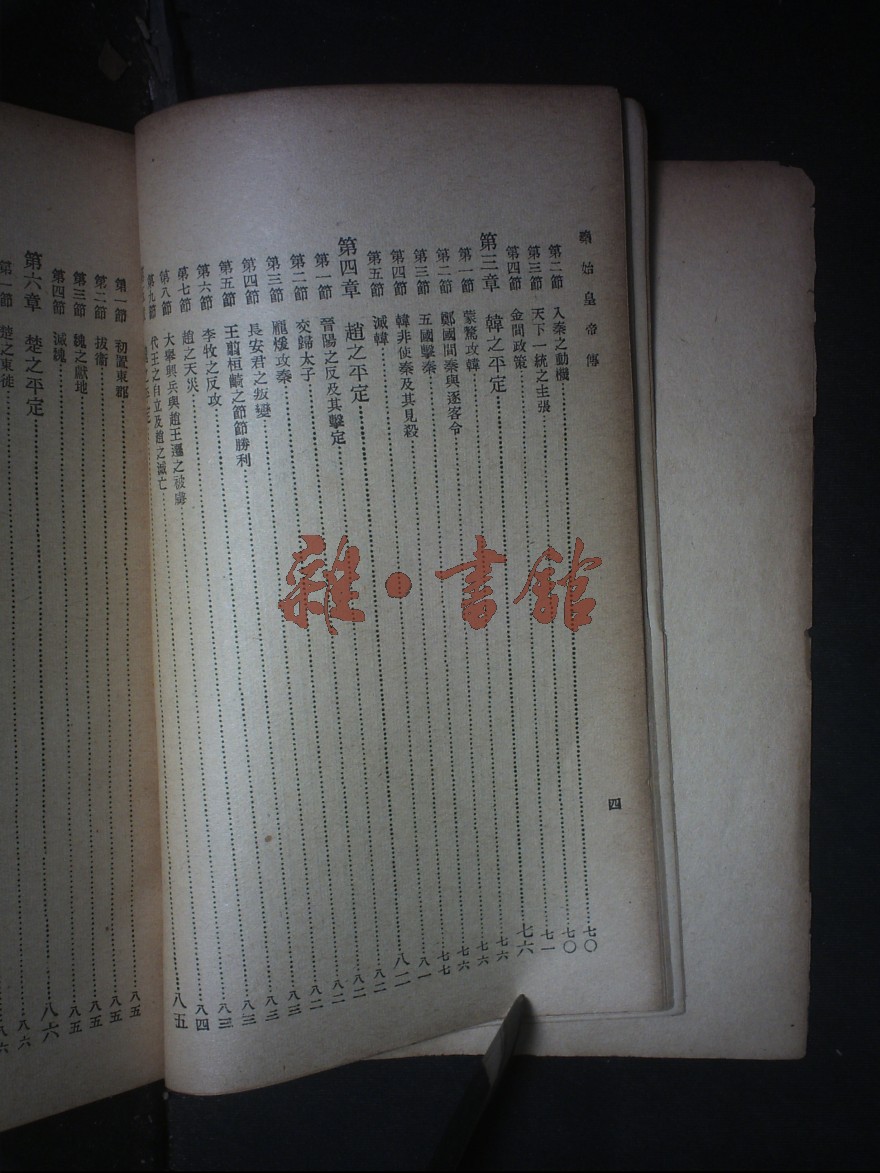 秦始皇帝傳
四
第二節 入秦之動機 七〇
第三節 天下一統之主張 七〇
第四節 金間政策 七一
第三章 韓之平定 七六
第一節 蒙驁攻韓 七六
第二節 鄭國間秦與逐客令 七六
第三節 五國擊秦 七六
第四節 韓非使秦及其見殺 七七
第五節 滅韓 八一
第四章 趙之平定 八二
第一節 晉陽之反及其擊定 八二
第二節 交歸太子 八二
第三節 龐煖攻秦 八二
第四節 長安君之叛變 八二
第五節 王翦桓齮之節節勝利 八三
第六節 李牧之反攻 八三
第七節 趙之天災 八三
第八節 大舉興兵與趙王遷之被虜 八三
第九節 代王之自立及趙之滅亡 八四
之平定 八五
第一節 初置東郡 八五
第二節 拔衛 八五
第三節 魏之獻地 八五
第四節 滅魏 八五
第六章 楚之平定 八六
第一節 楚之東徙 八六
雜·書館